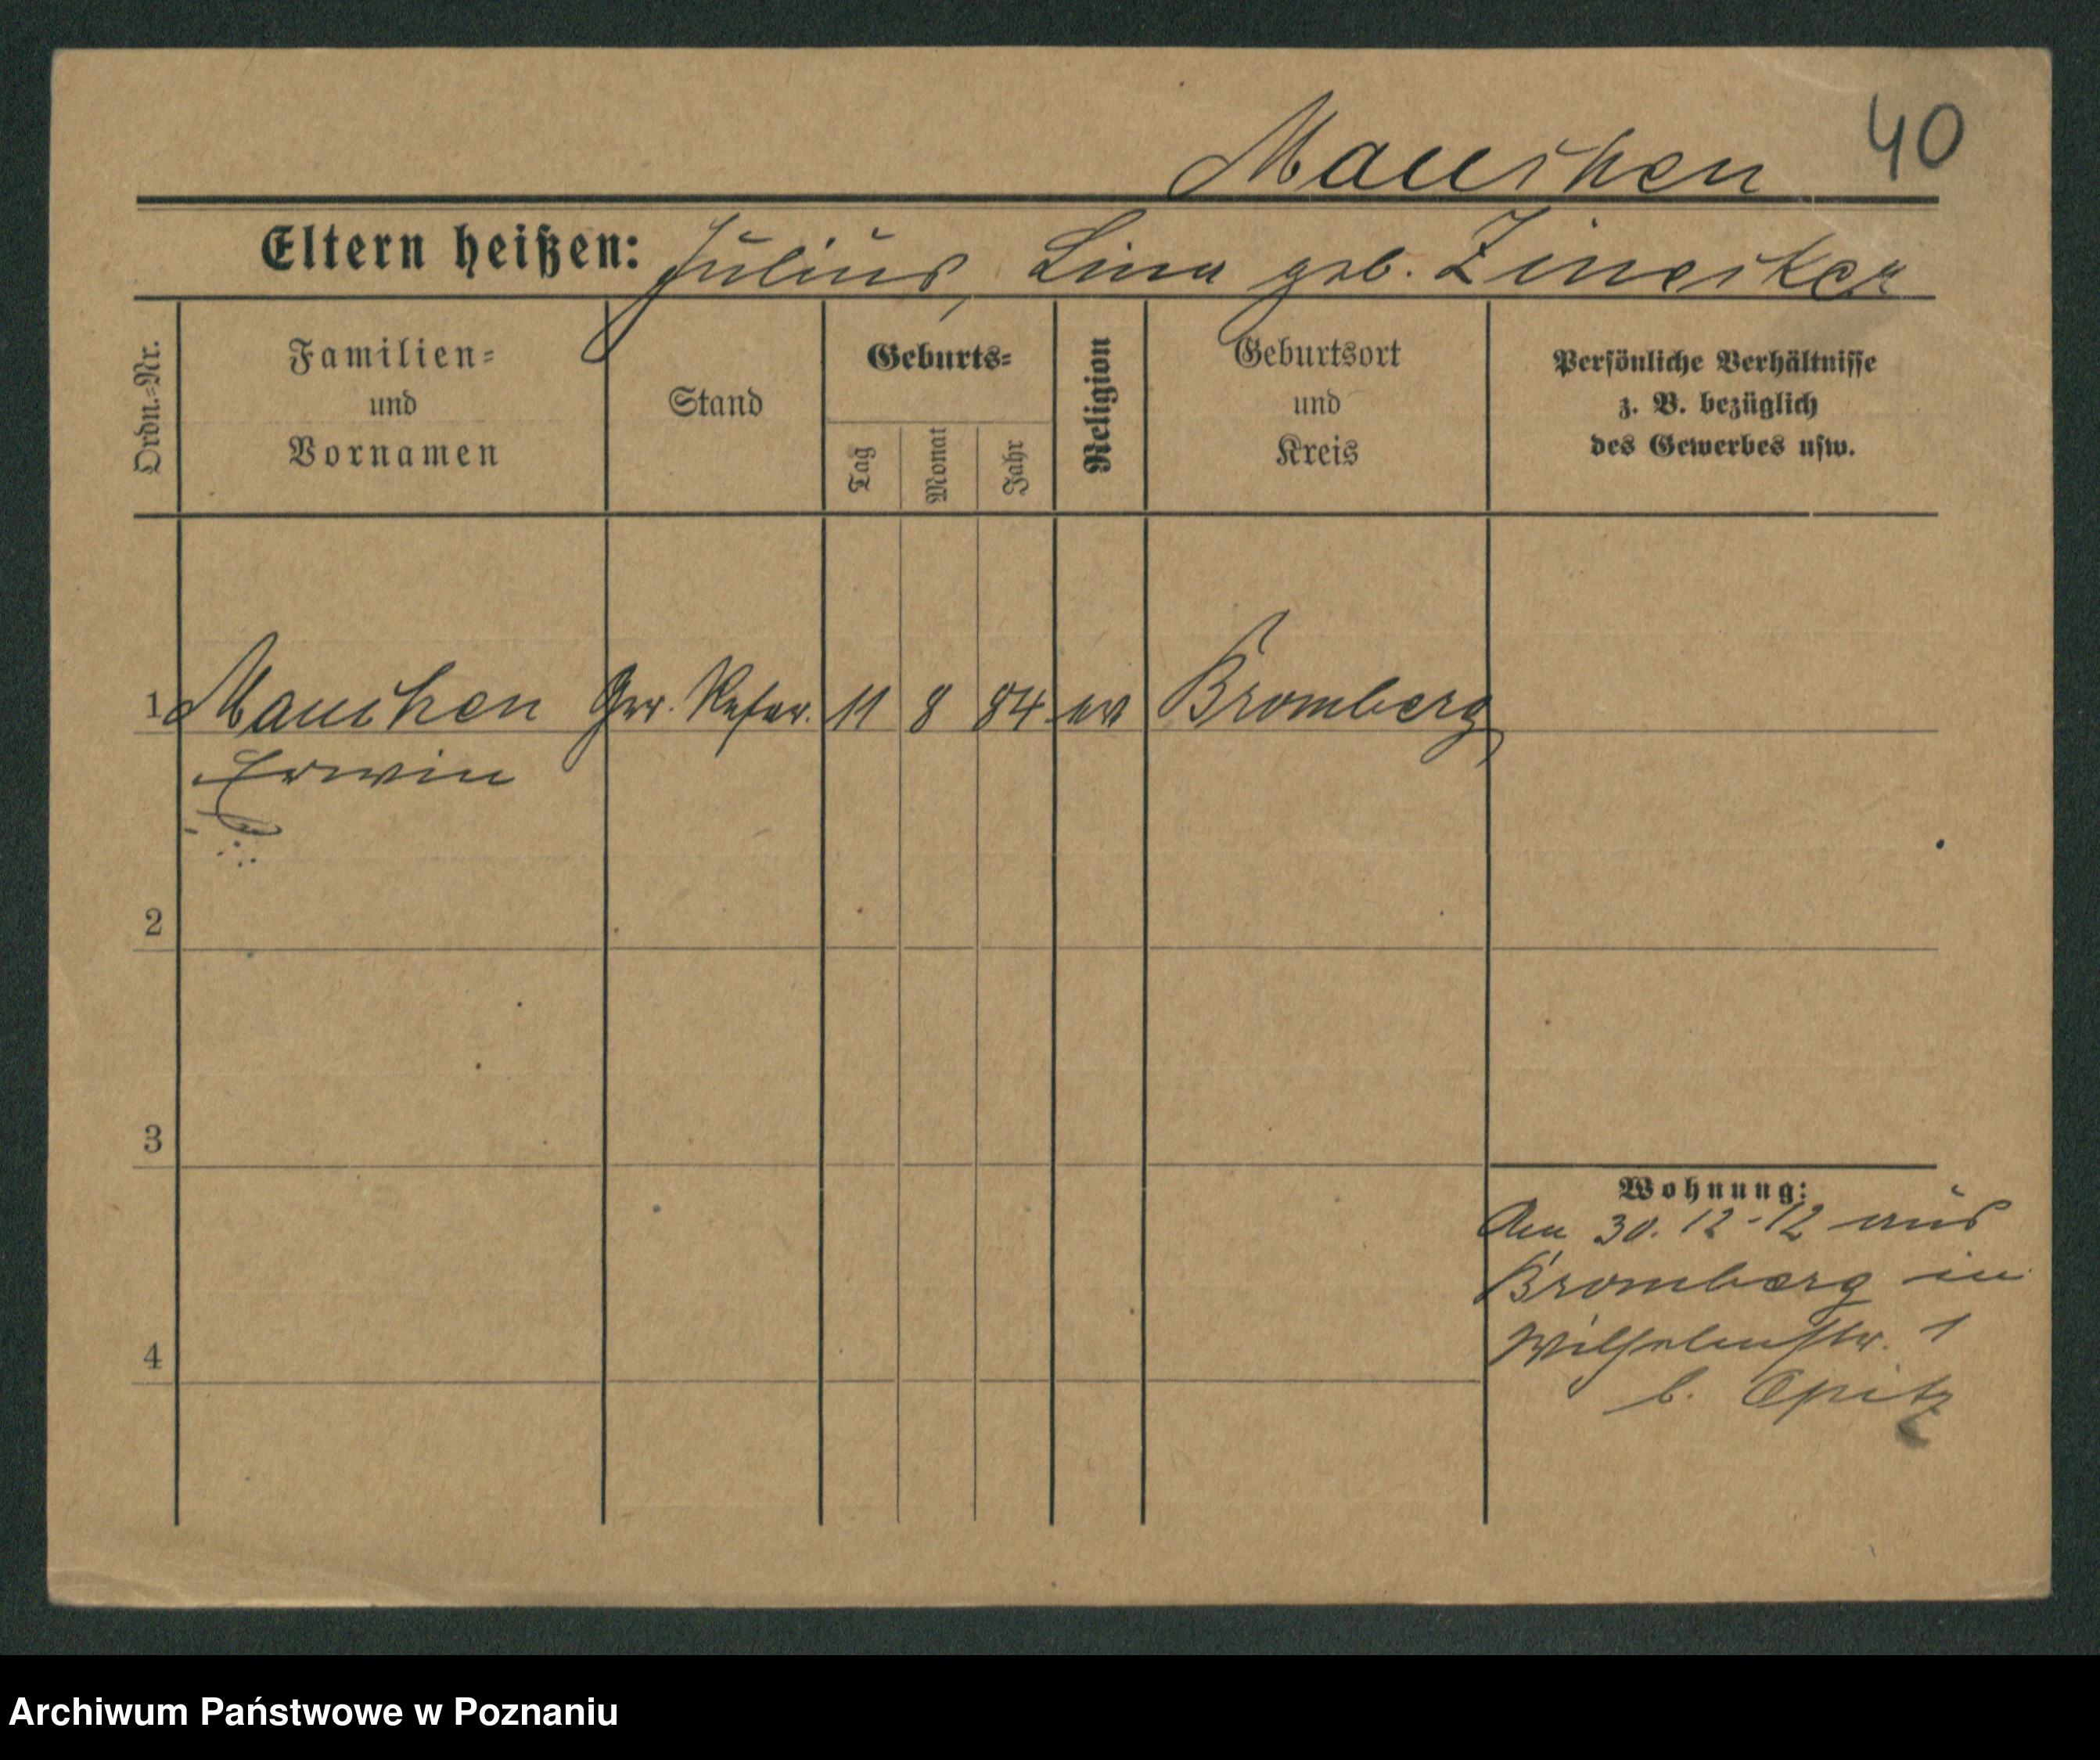 40
Mauchen
Eltern heißen: Julius, Lina geb.
Ordn.-Nr.
Familien-
und
Vornamen
Stand
Geburts-
Tag
Monat
Jahr
Religion
Geburtsort
und
Kreis
Persönliche Verhältnisse
z. B. bezüglich
des Gewerbes usw.
1 Mauchen Ger. Refer. 11 8 84 ev Bromberg
Erwin
2
3
4
Wohnung:
Am 30.12-12 aus
Bromberg in
Wilhelmstr. 1
b. Opitz
Archiwum Państwowe w Poznaniu